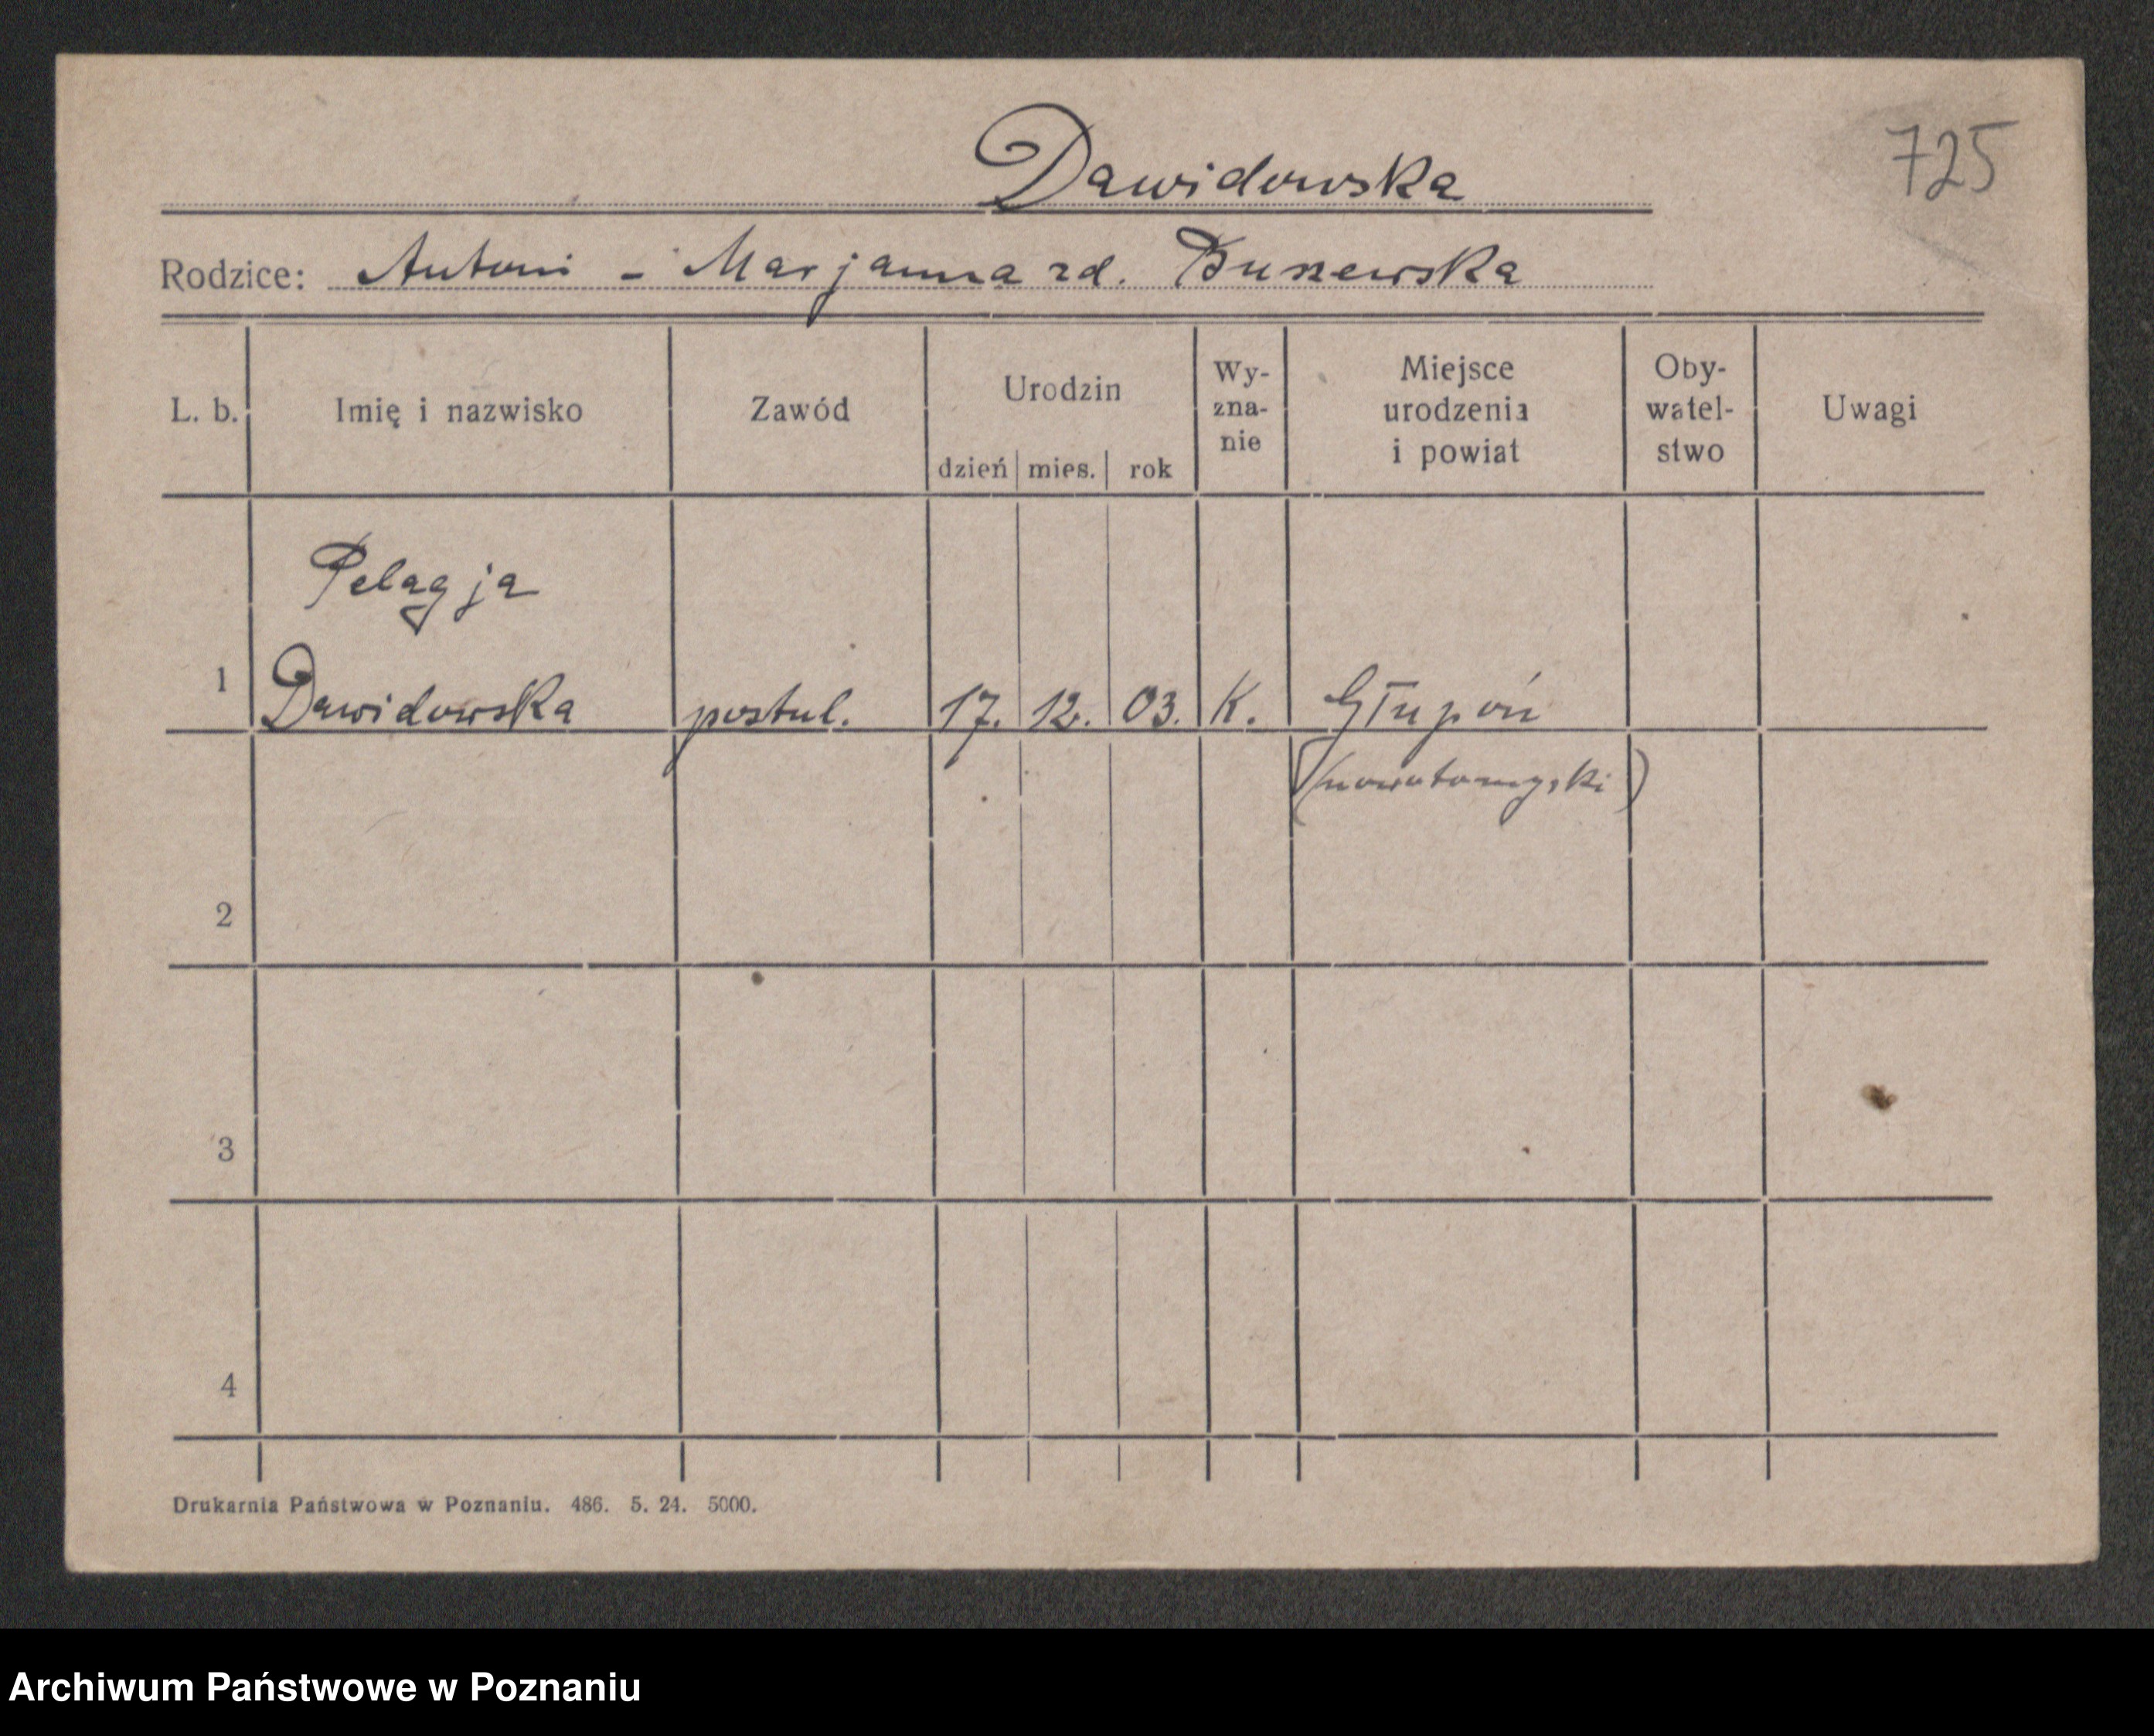 Dawidowska
725
Rodzice: Antoni - Marjanna zd.
L. b. Imię i nazwisko Zawód Urodzin dzień mies. rok Wy-zna-nie Miejsce urodzenia i powiat Oby-watel-stwo Uwagi
Pelagja
1 Dawidowska postul. 17. 12. 03. K. Głupoń
(nowotomyski)
2
3
4
Drukarnia Państwowa w Poznaniu. 486. 5. 24. 5000.
Archiwum Państwowe w Poznaniu